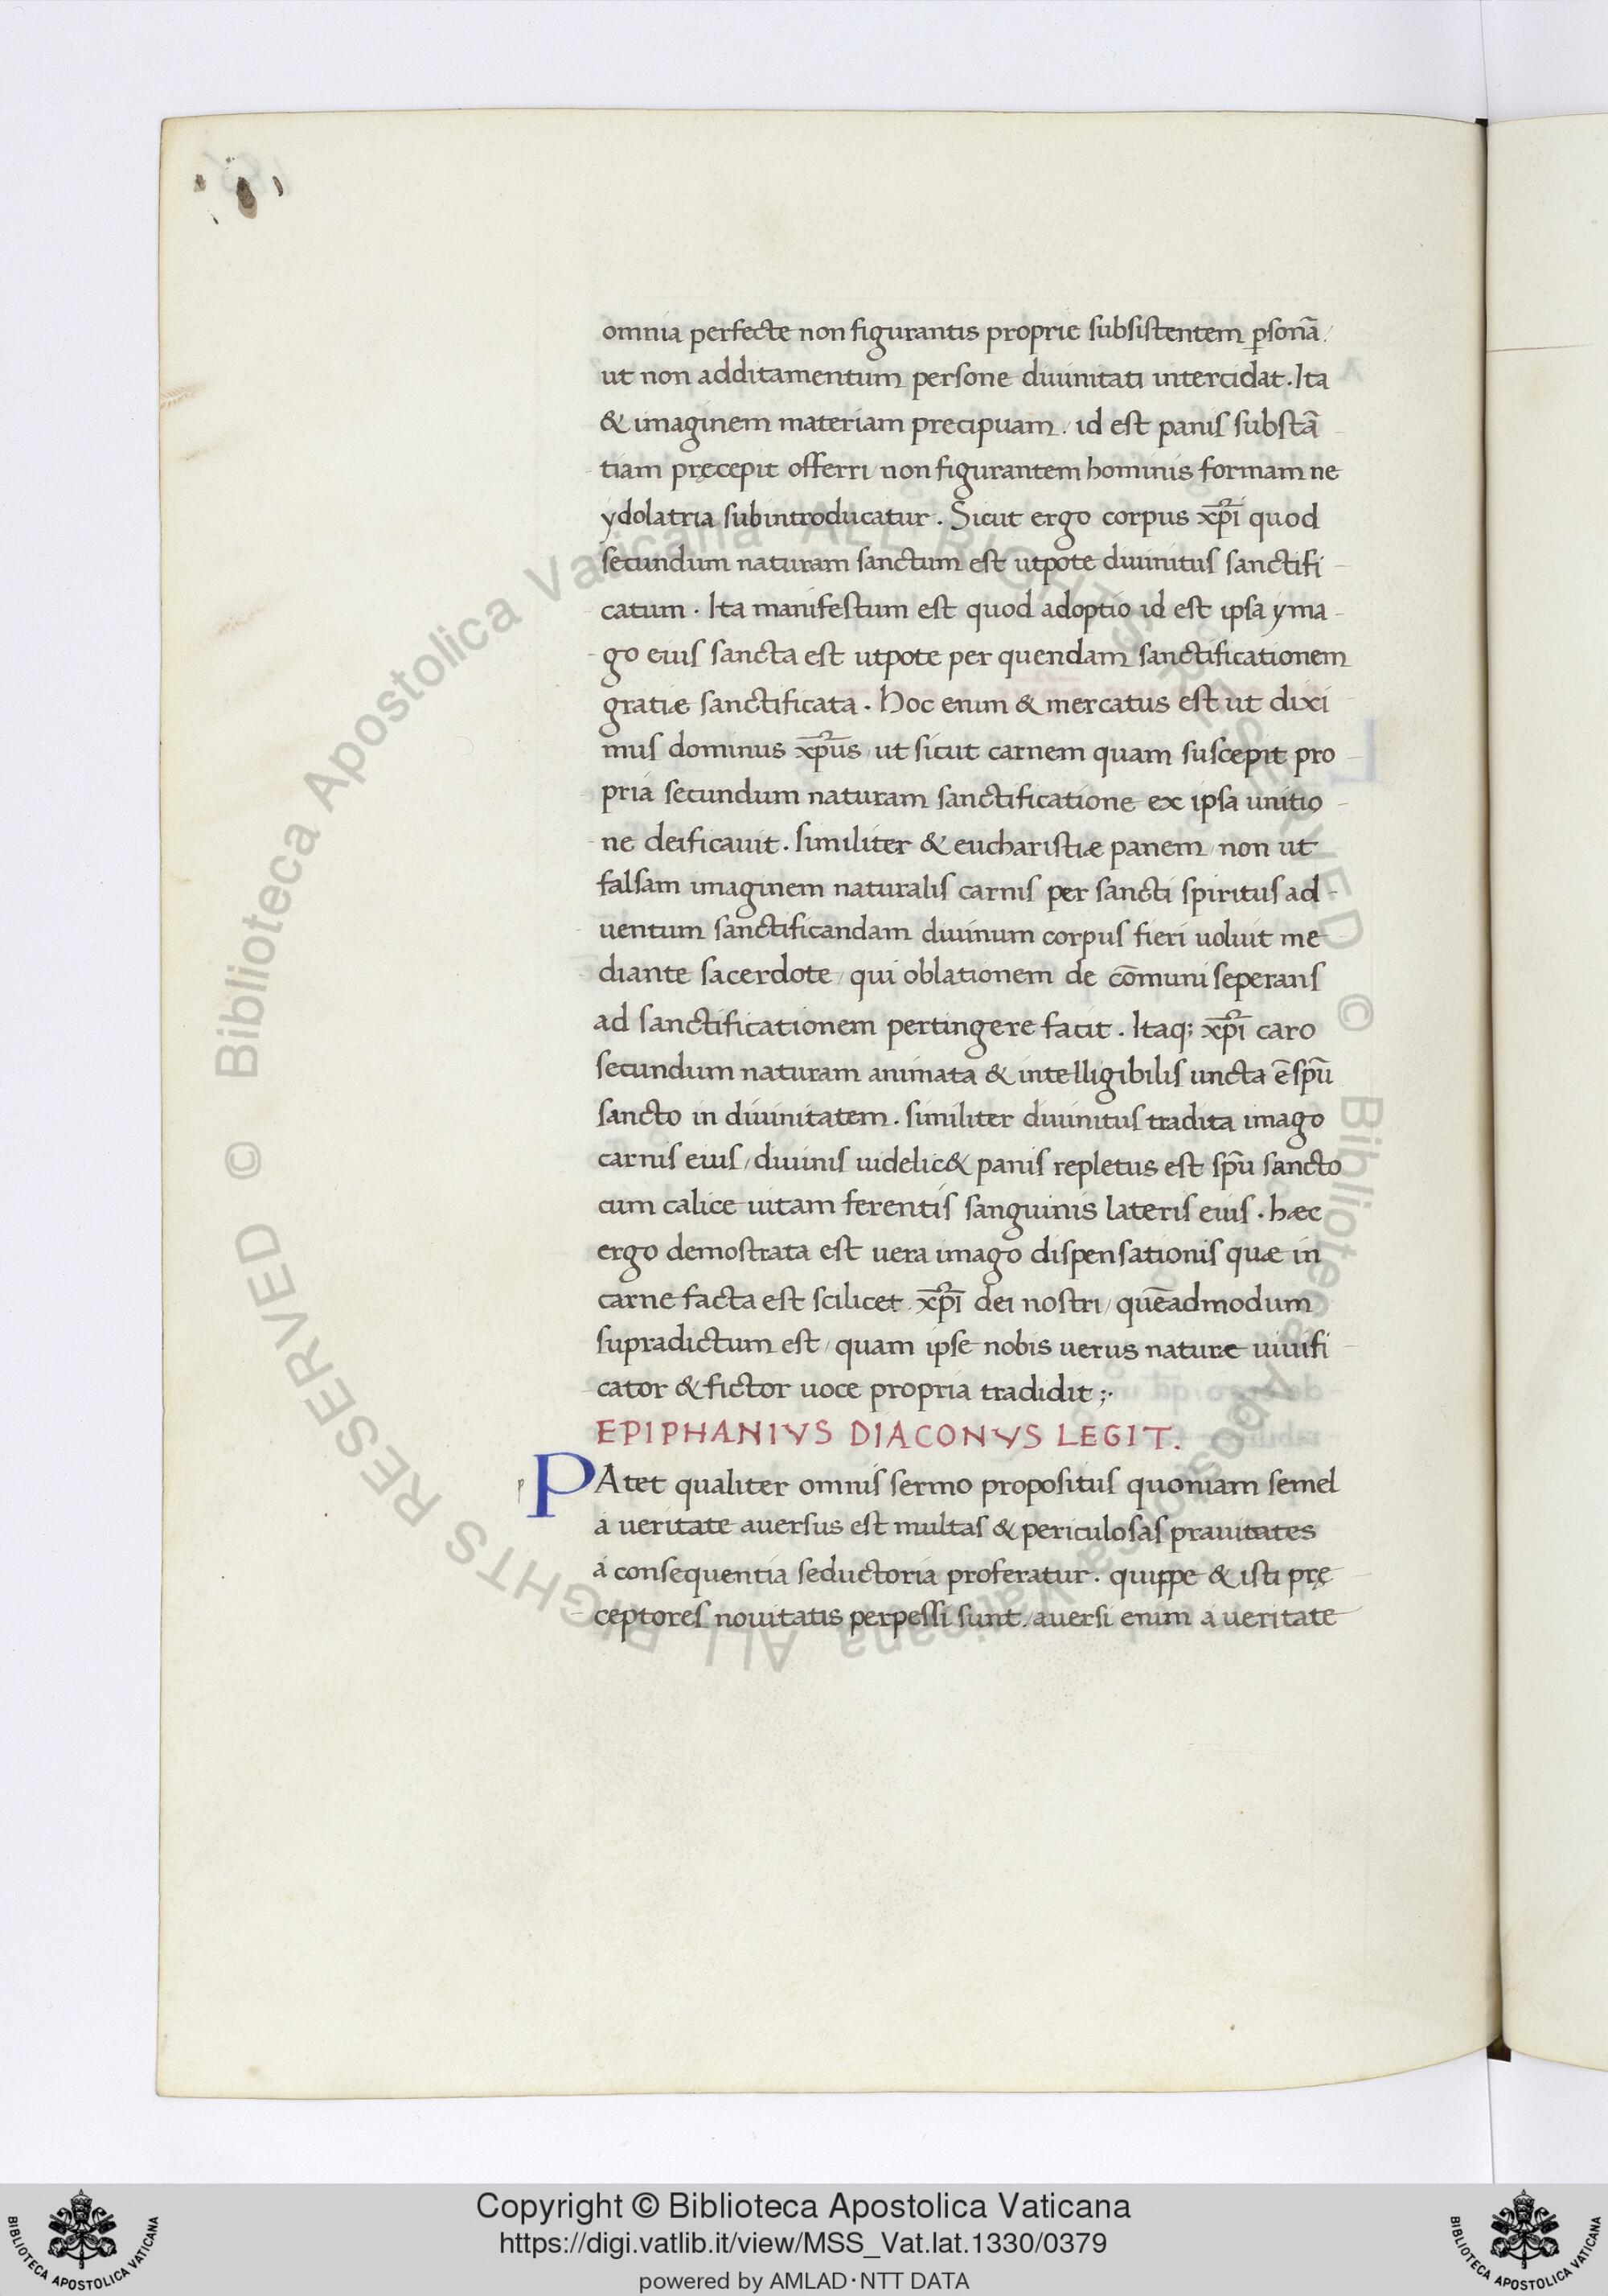 omnia perfecte non figurantis proprie subsistentem ꝑsonā/
ut non additamentum persone diuinitati intercidat. Ita
& imaginem materiam precipuam/ id est panis substā
tiam pręcepit offerri/ non figurantem hominis formam ne
ydolatria subintroducatur. Sicut ergo corpus xp̄i quod
secundum naturam sanctum est utpote diuinitus sanctifi
catum. Ita manifestum est quod adoptio id est ipsa yma
go eius sancta est utpote per quendam sanctificationem
gratiæ sanctificata. Hoc enim & mercatus est ut dixi
mus dominus xp̄us/ ut sicut carnem quam suscepit pro
pria secundum naturam sanctificatione ex ipsa unitio
ne deificauit. similiter & eucharistiæ panem/ non ut
falsam imaginem naturalis carnis per sancti spiritus ad
uentum sanctificandam diuinum corpus fieri uoluit me
diante sacerdote/ qui oblationem de cōmuni seperans
ad sanctificationem pertingere facit. Itaq; xp̄i caro
secundum naturam animata & intelligibilis uncta ē sp̄u
sancto in diuinitatem. similiter diuinitus tradita imago
carnis eius/ diuinis uidelic& panis repletus est sp̄u sancto
cum calice uitam ferentis sanguinis lateris eius. hæc
ergo demostrata est uera imago dispensationis quæ in
carne facta est scilicet xp̄i dei nostri/ quēadmodum
supradictum est/ quam ipse nobis uerus naturæ uiuifi
cator & fictor uoce propria tradidit;·
EPIPHANIVS DIACONVS LEGIT.
p PAtet qualiter omnis sermo propositus quoniam semel
a ueritate auersus est multas & periculosas prauitates
a consequentia seductoria proferatur. quippe & isti prę
ceptores nouitatis perpessi sunt/ auersi enim a ueritate
© Biblioteca Apostolica Vaticana ALL RIGHTS RESERVED © Biblioteca Apostolica Vaticana ALL RIGHTS RESERVED
Copyright © Biblioteca Apostolica Vaticana
https://digi.vatlib.it/view/MSS_Vat.lat.1330/0379
powered by AMLAD·NTT DATA
BIBLIOTECA APOSTOLICA VATICANA
BIBLIOTECA APOSTOLICA VATICANA